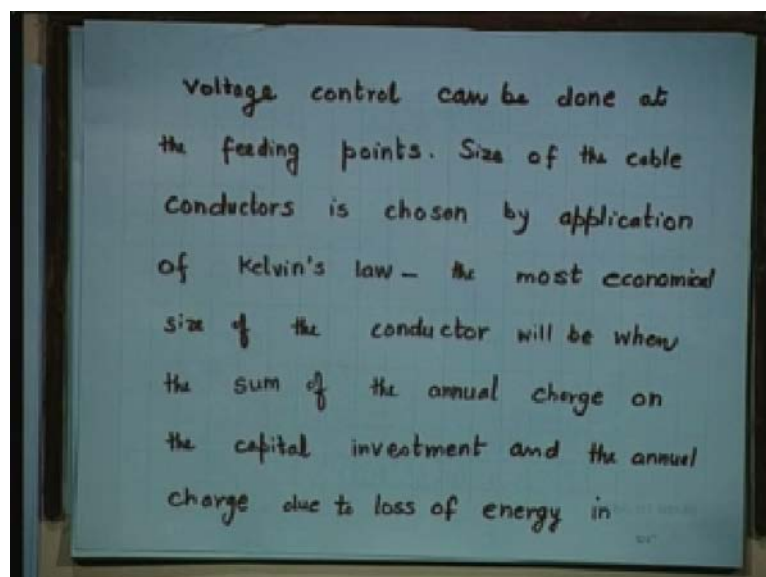 Voltage control can be done at
the feeding points. Size of the cable
conductors is chosen by application
of Kelvin's law – the most economical
size of the conductor will be when
the sum of the annual charge on
the capital investment and the annual
charge due to loss of energy in